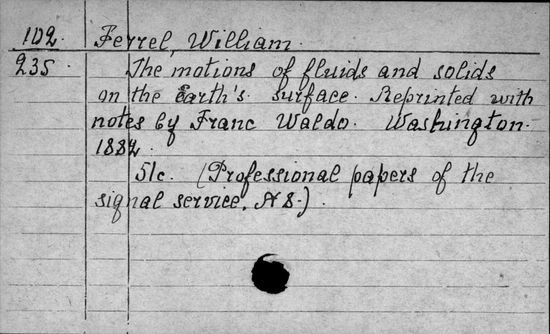 102. Ferrel, William.
235 The motions of fluids and solids
on the Earth's surface. Reprinted with
notes by Franc Waldo. Washington.
1882.
51c. (Professional papers of the
signal service, N 8.)